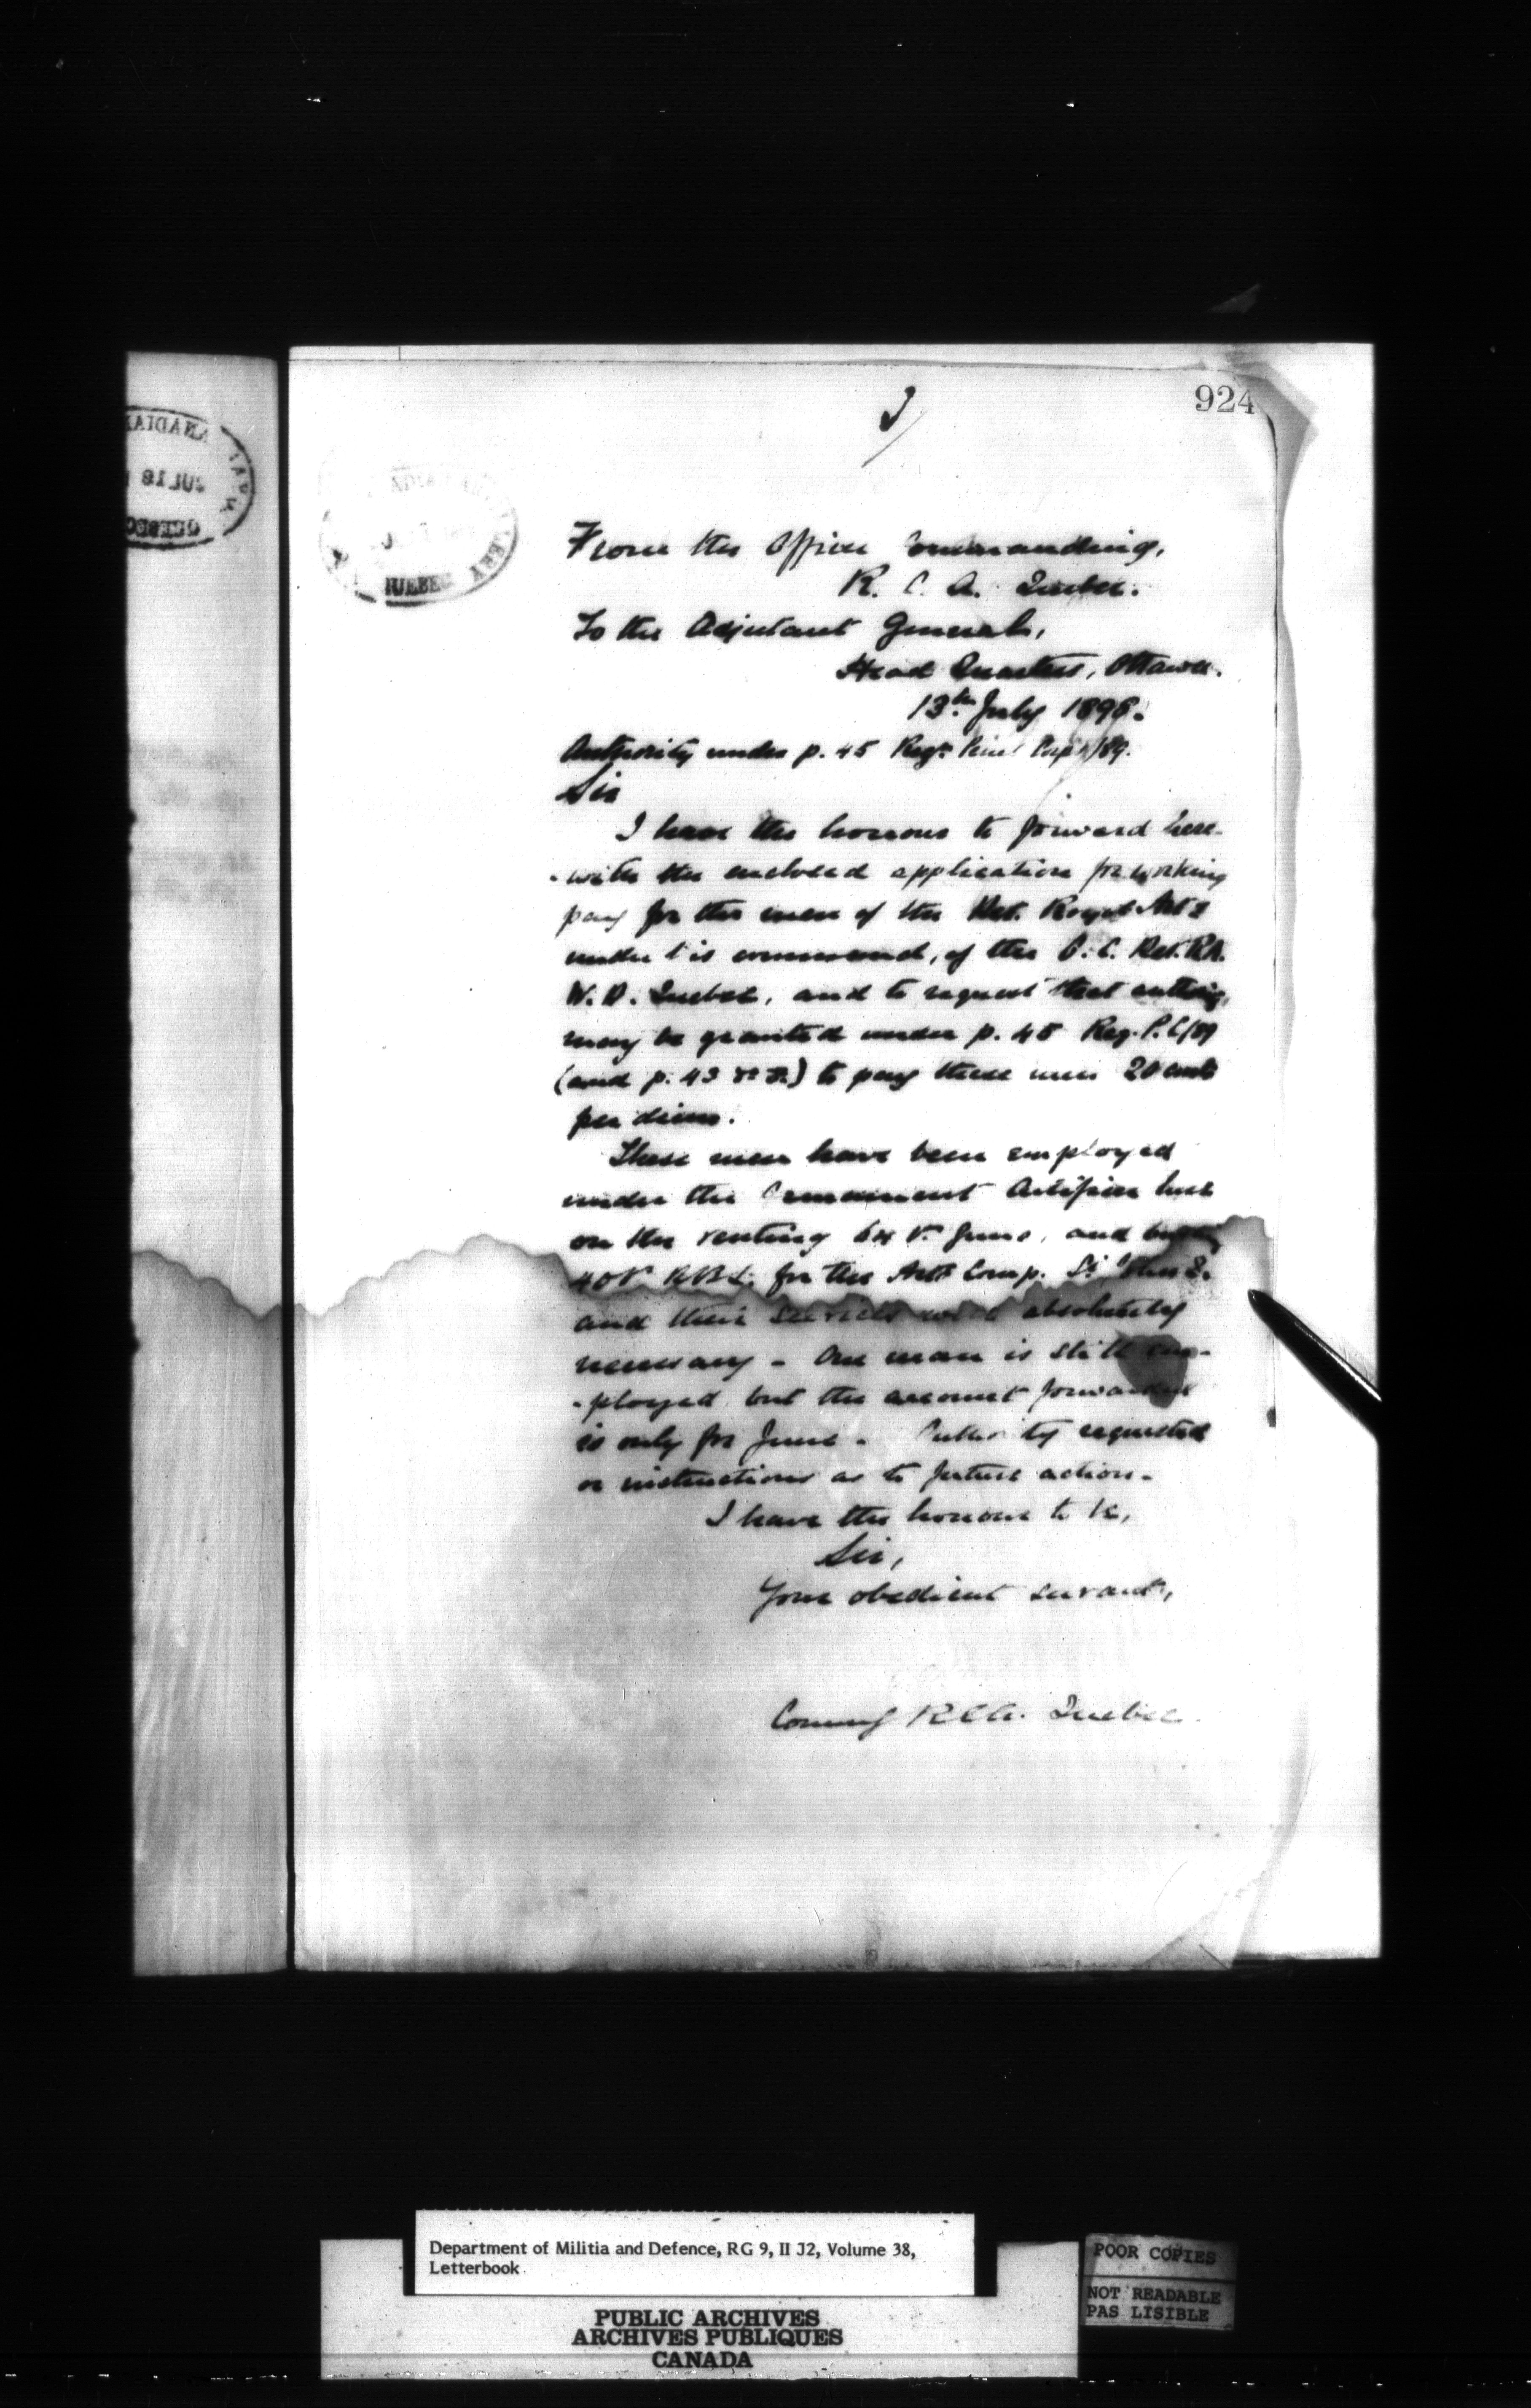 924
QUEBEC
From the Officer Commanding,
R. C. A. Quebec.
To the Adjutant General,
Head Quarters, Ottawa.
13th July 1898.
Authority under p. 45 Regs. /89.
Sir
I have the honour to forward here-
-with the enclosed application for working
pay for the men of the Det. Royal Art
under his command, of the O. C. Det. R.A.
W. D. Quebec, and to request that
may be granted under p. 45 Reg. P. C/89
(and p. 43 ) to pay these men 20 cents
per diem.
These men have been employed
under the Armament Artificer here
on the venting 64 Pr. Guns, and
40 Pr RBL. for the Art Comp.
and their services were absolutely
necessary - One man is still em-
-ployed but the account forwarded
is only for June - Authority requested
or instructions as to future action -
I have the honour to be,
Sir,
Your obedient servant,
Commg RCA. Quebec.
Department of Militia and Defence, RG 9, II J2, Volume 38,
Letterbook
PUBLIC ARCHIVES
ARCHIVES PUBLIQUES
CANADA
POOR COPIES
NOT READABLE
PAS LISIBLE